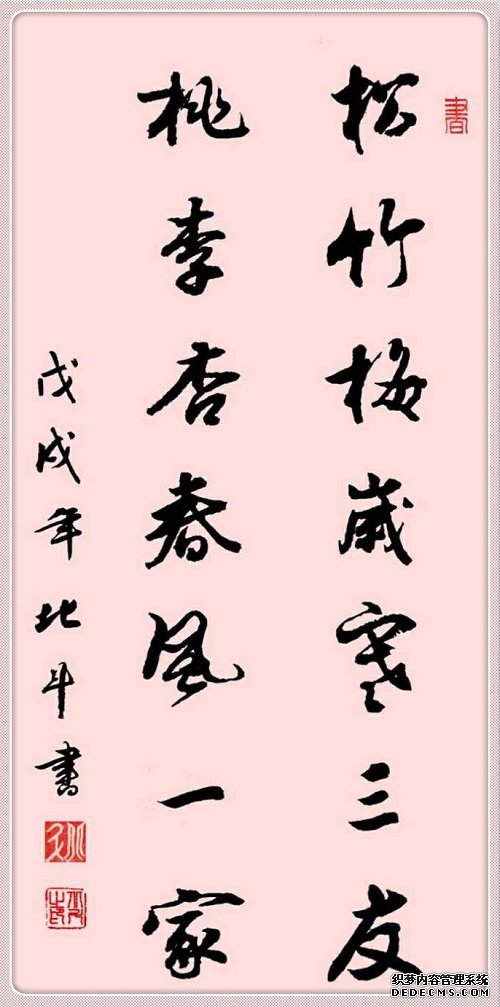 書
松竹梅歲寒三友
桃李杏春風一家
戊戌年北斗書
织梦内容管理系统
DEDECMS.COM